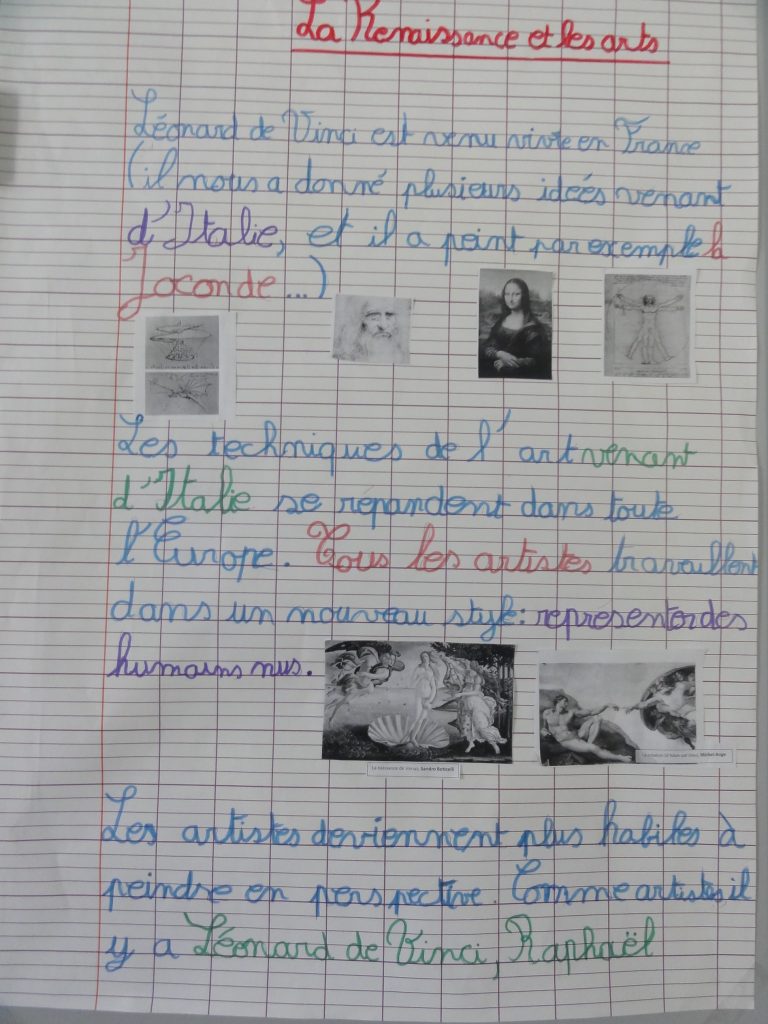 La Renaissance et les arts
Léonard de Vinci est venu vivre en France
(il nous a donné plusieurs idées venant
d'Italie, et il a peint par exemple la
Joconde...)
Les techniques de l'art venant
d'Italie se repandent dans toute
l'Europe. Tous les artistes travaillent
dans un nouveau style: representer des
humains nus.
La naissance de Vénus, Sandro Botticelli
Michel-Ange
Les artistes deviennent plus habiles à
peindre en perspective. Comme artistes il
y a Léonard de Vinci, Raphaël